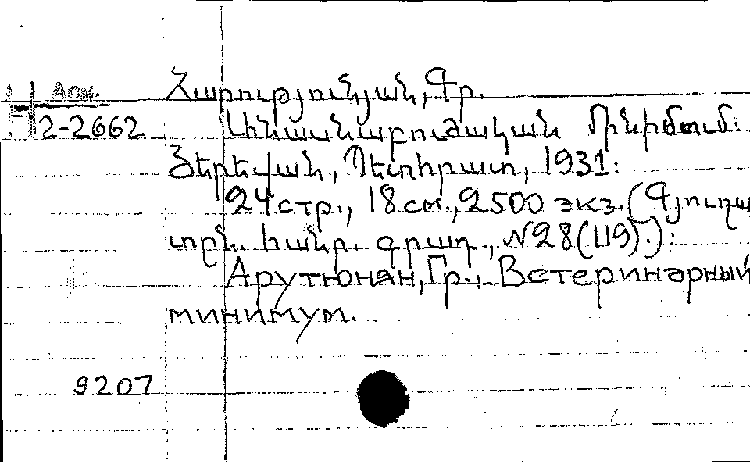 Հարությունյան, Գր.
2-2662 Անասնաբուժական մինիմում:
Յերեվան, Պետհրատ, 1931:
24 стр., 18 см., 2500 экз. (Գյուղա
տնտ. հանր. գրադ., №28(119).):
Арутюнян, Гр., Ветеринарный
минимум.
9207